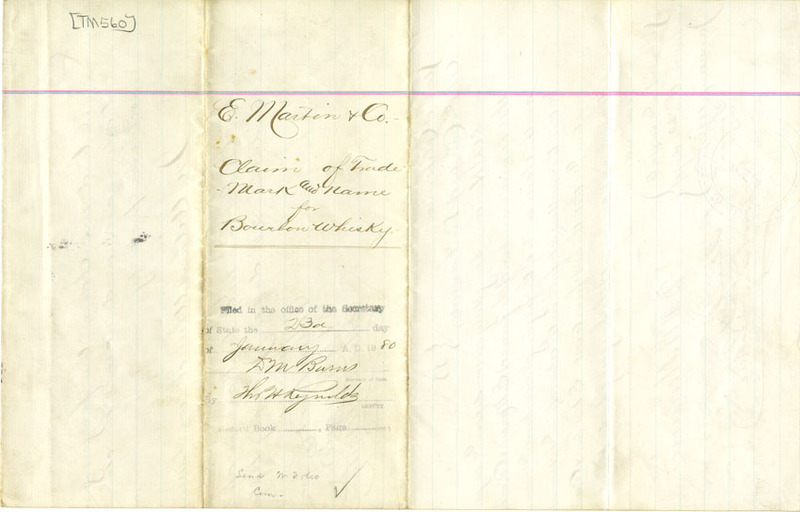 [TM560]
E. Martin & Co.-
Claim of Trade
-Mark and Name
for
Bourbon Whisky.
Filed in the office of the Secretary
of State the 23d day
of January A.D. 18 80
D M Burns
By Thos H Reynolds
DEPUTY
Book , Page
Send
Com.